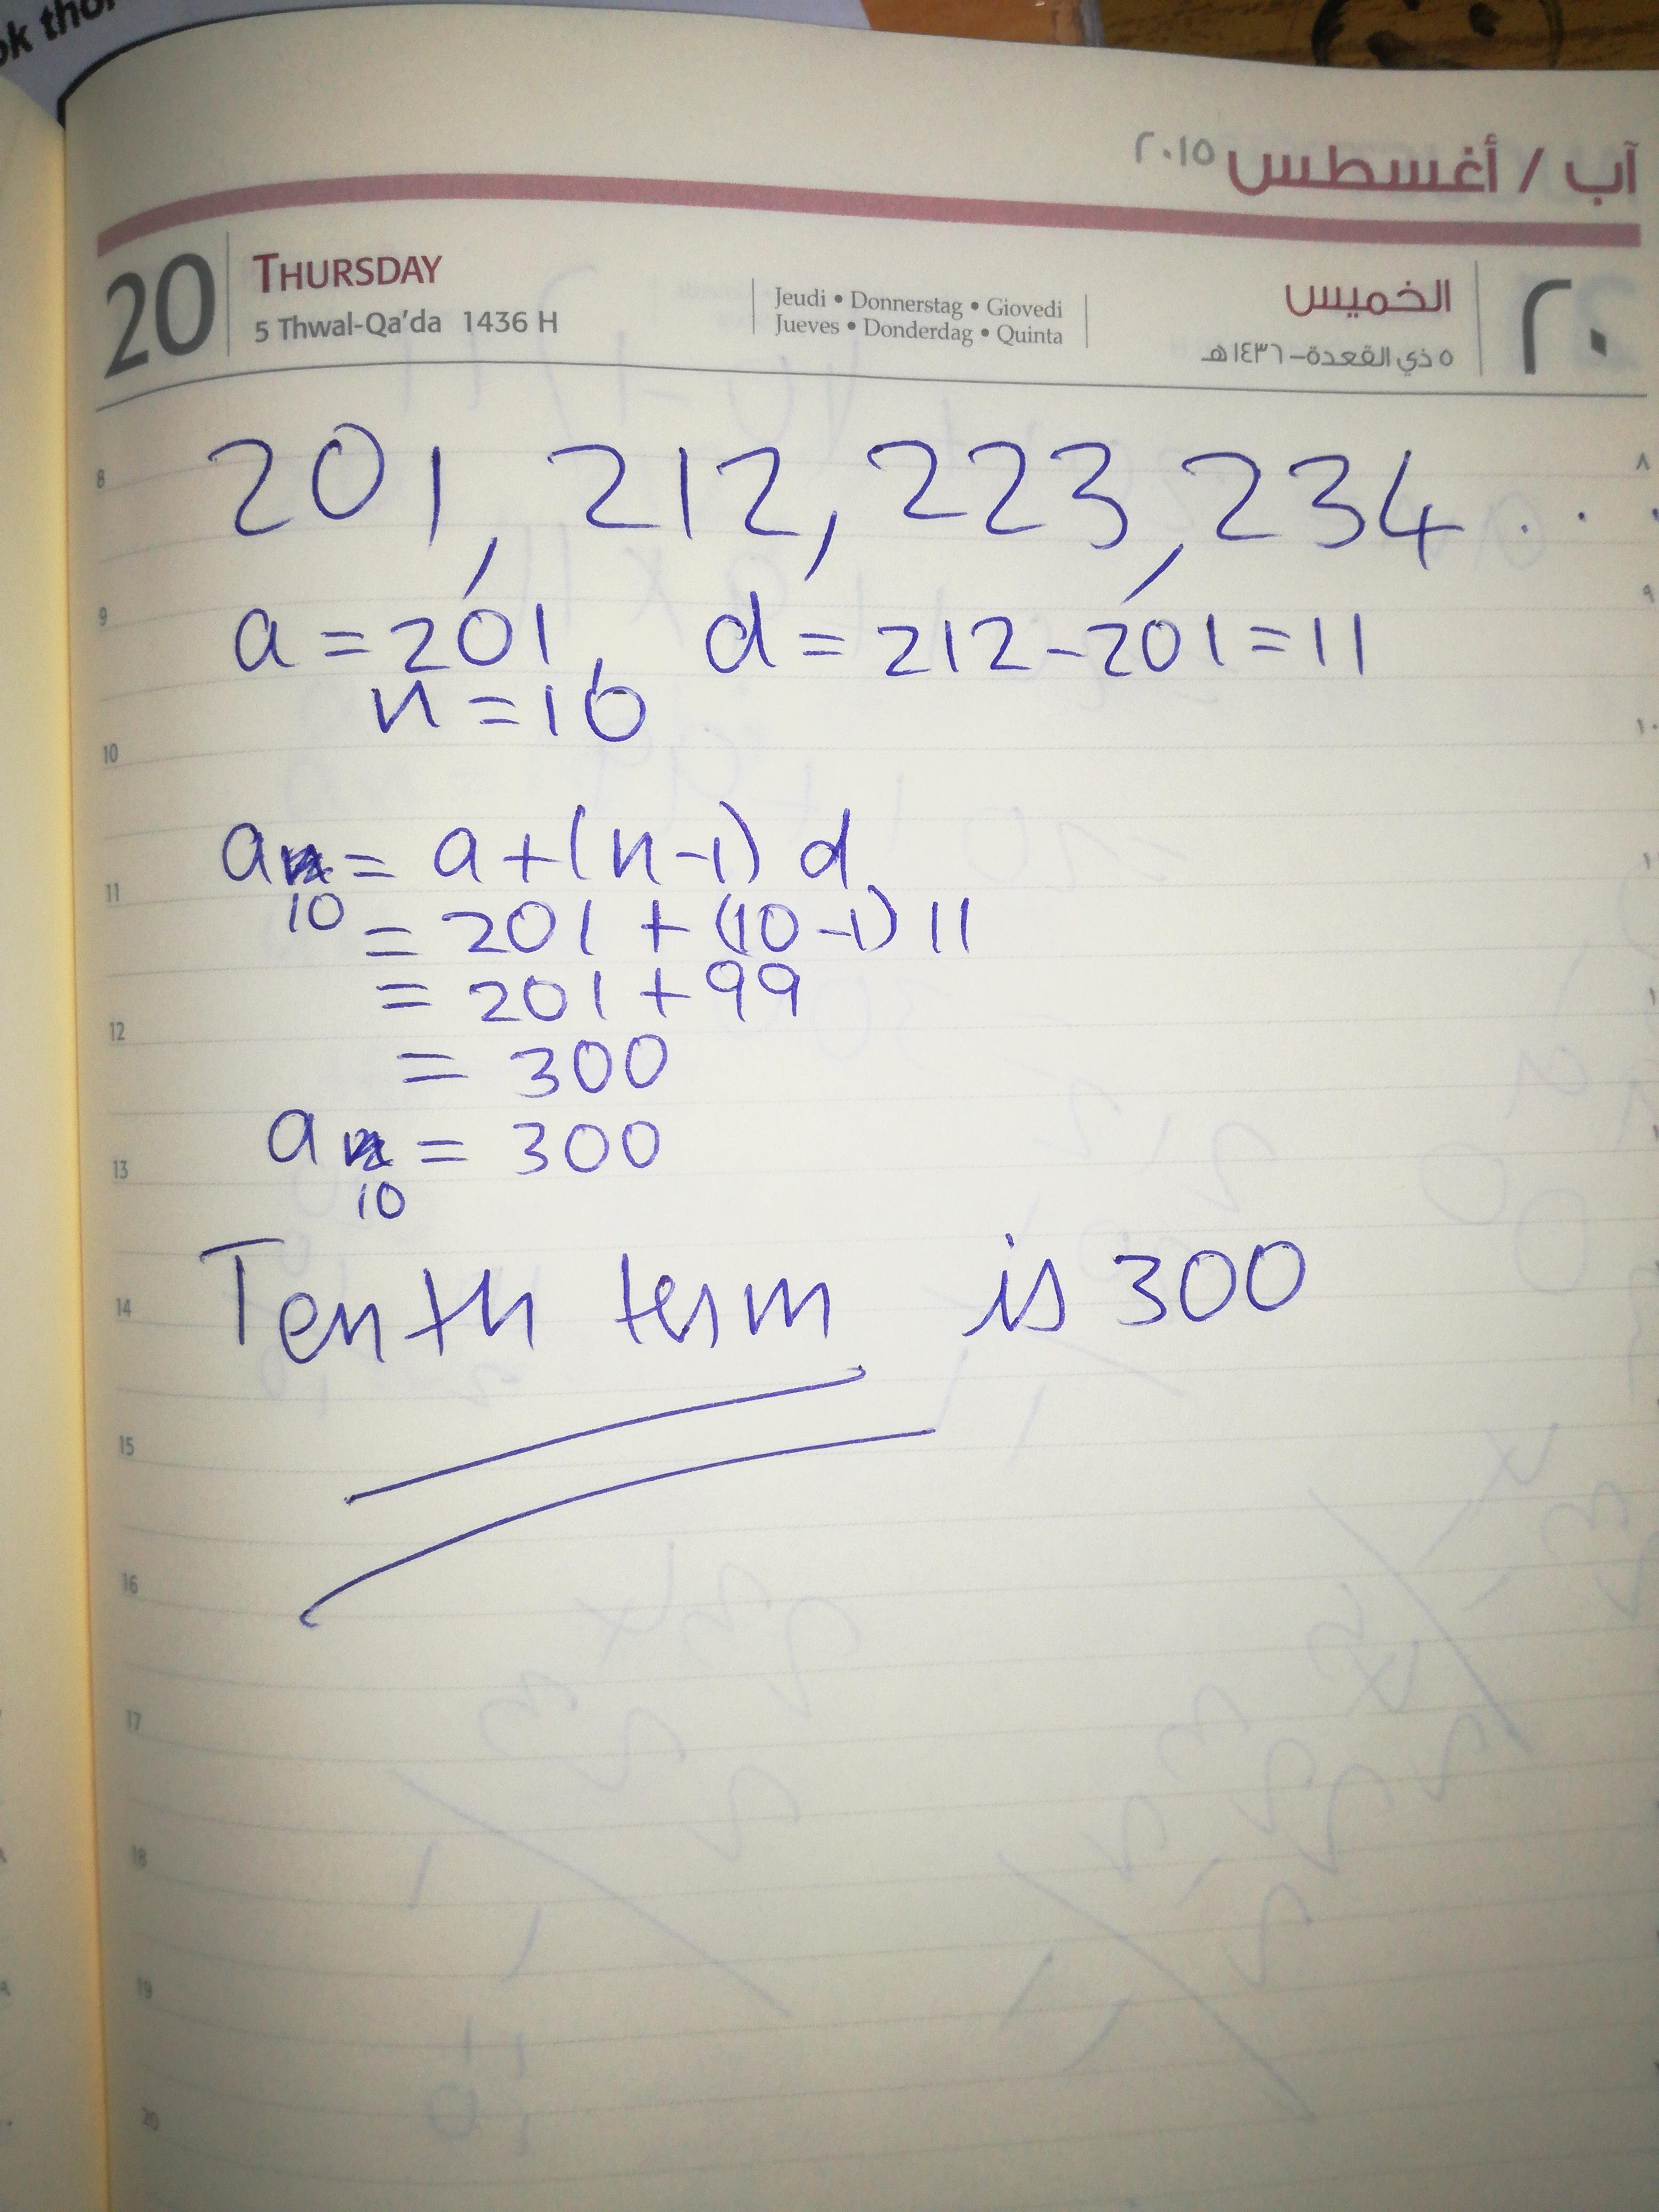 ok thou
آب / أغسطس ٢٠١٥
20 THURSDAY
5 Thwal-Qa'da 1436 H
Jeudi • Donnerstag • Giovedi
Jueves • Donderdag • Quinta
الخميس ٢٠
٥ ذي القعدة-١٤٣٦هـ
8 201, 212, 223, 234 . . . ٨
9 a = 201, d = 212-201=11 ٩
n = 10
10
an = a+(n-1) d
11 10 = 201 + (10-1) 11
= 201 + 99
12 = 300
13 an = 300
10
14 Tenth term is 300
15
16
17
18
19
20